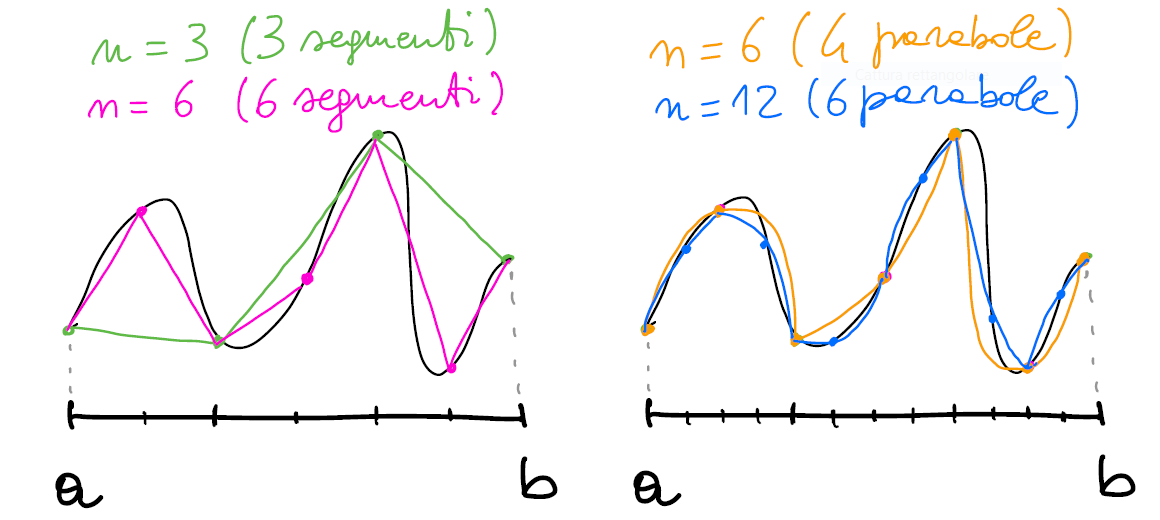 n = 3 (3 segmenti)
n = 6 (6 segmenti)
a
b
n = 6 (4 parabole)
Cattura rettangole
n = 12 (6 parabole)
a
b